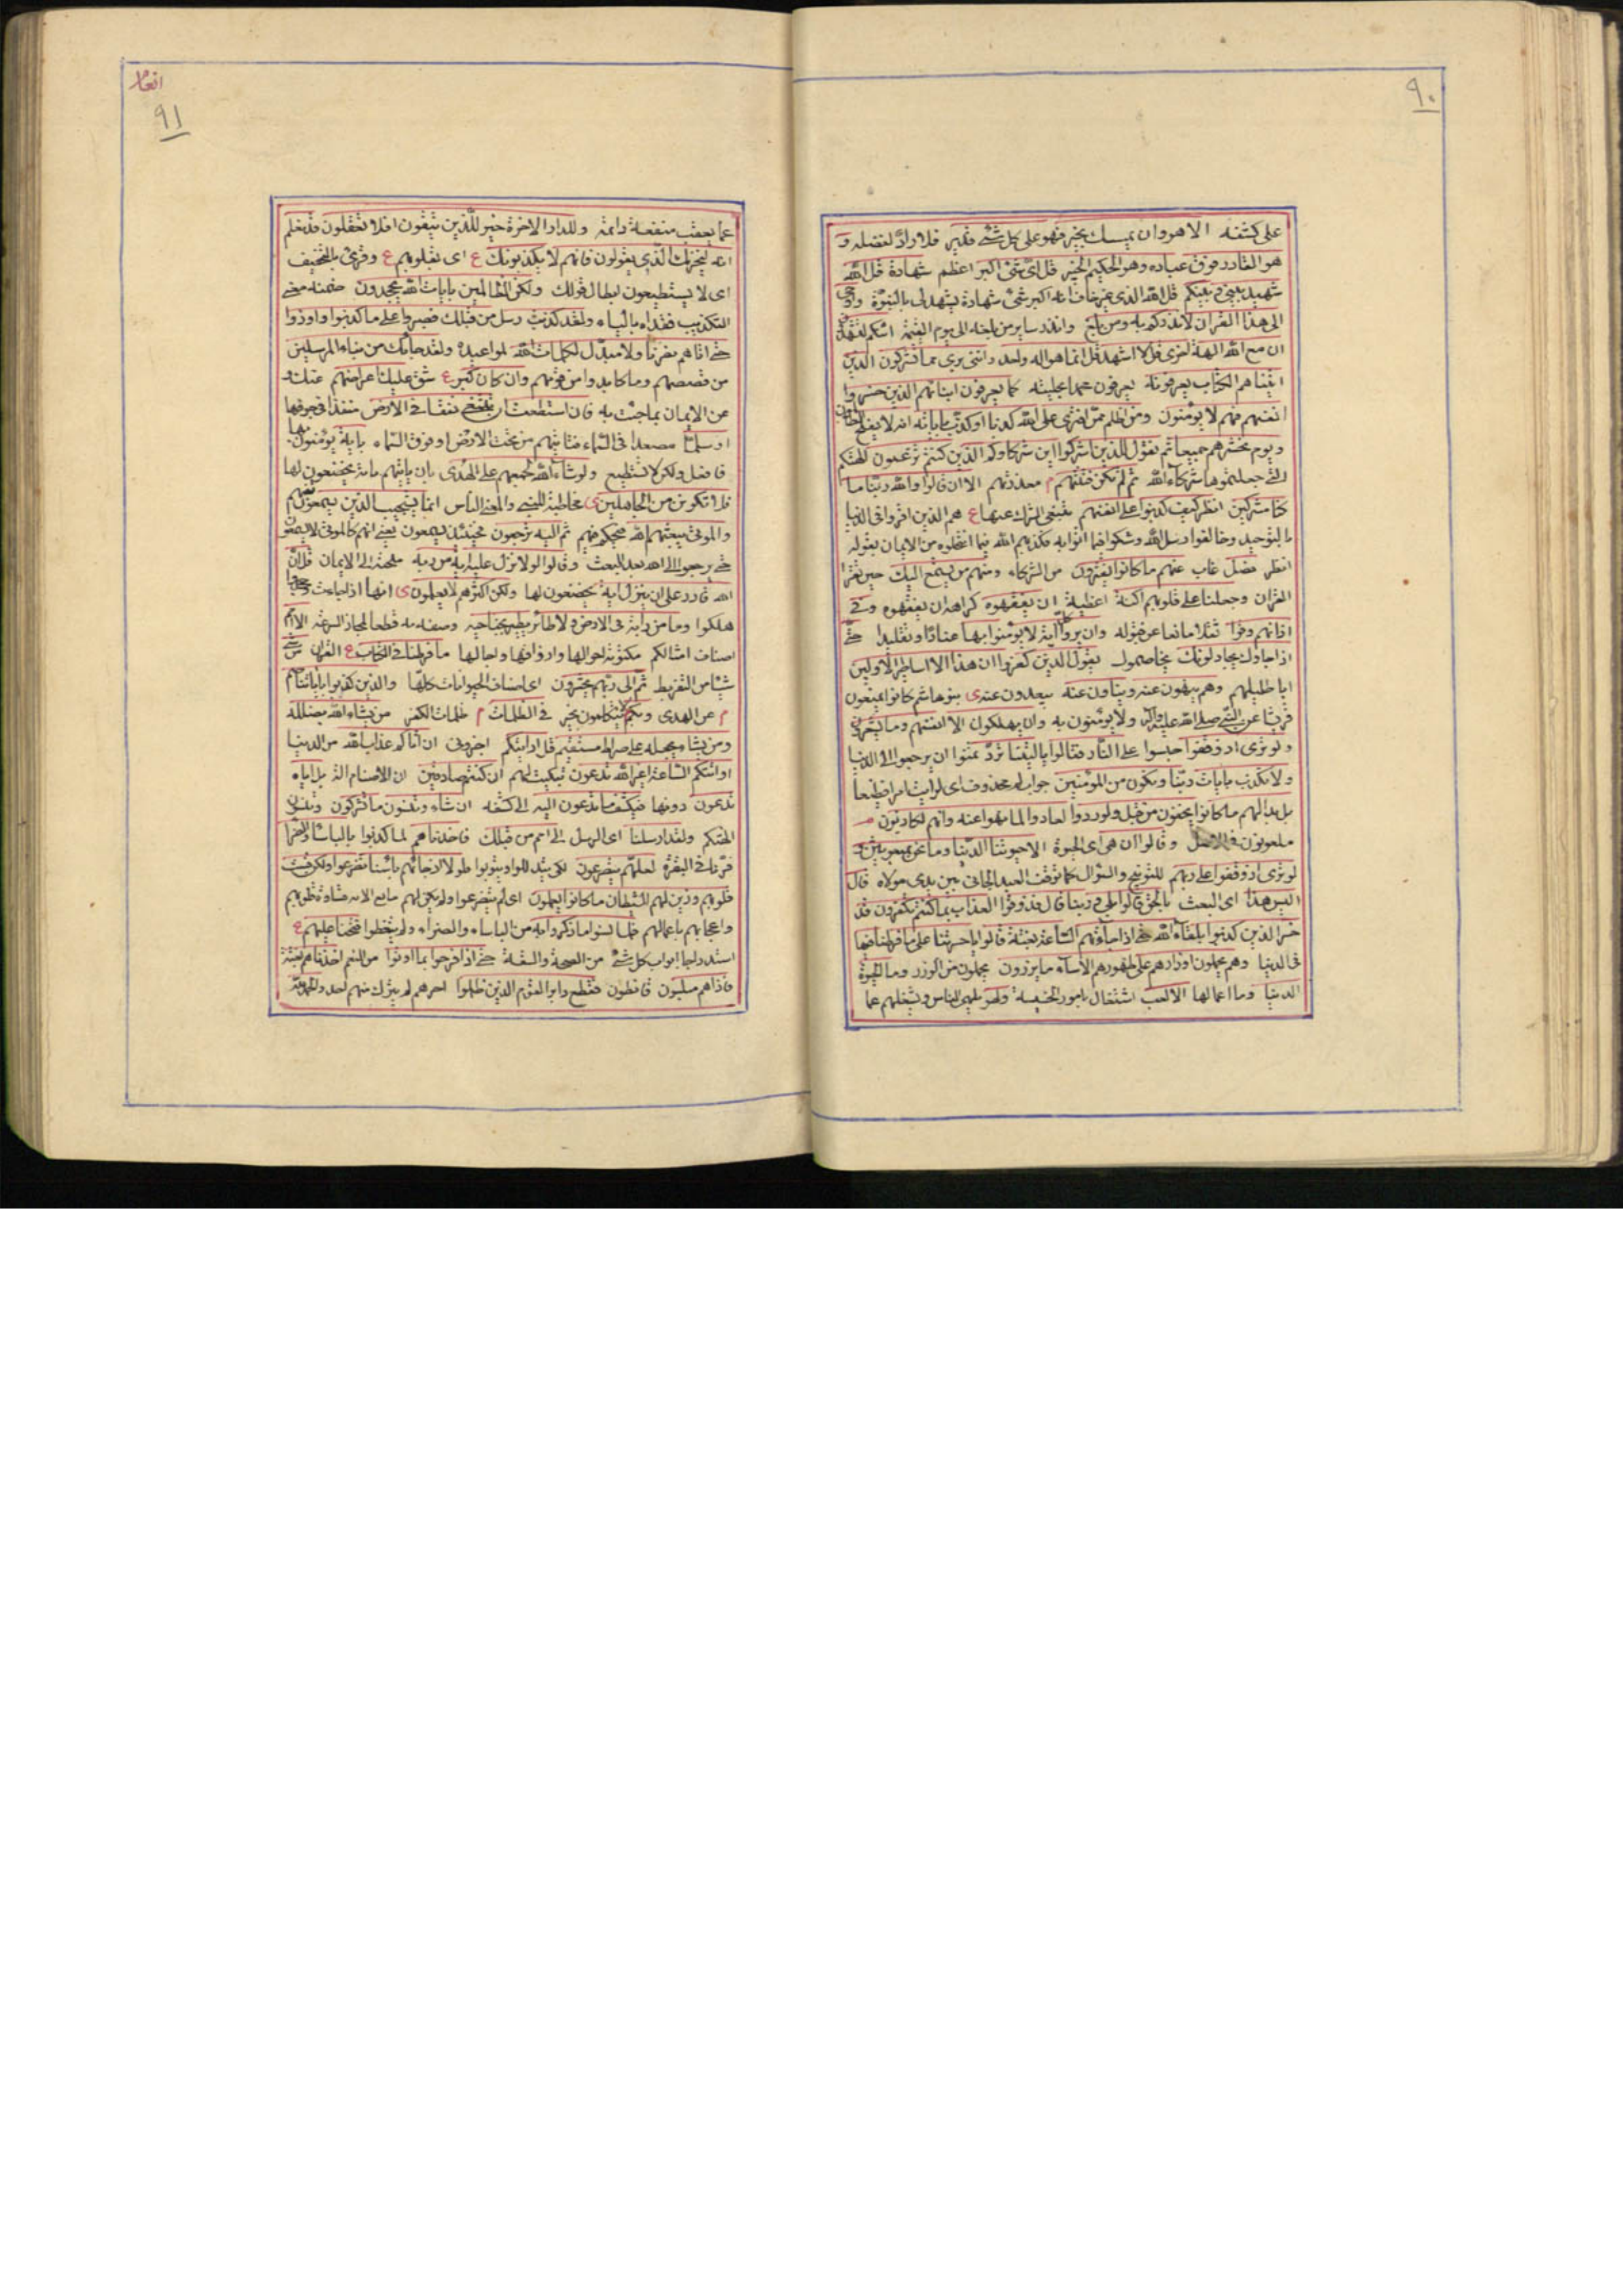 ٩٠
على كشفه الا هو وان يمسسك بخير فهو على كل شئ قدير فلا رادّ لفضله و
هو القادر فوق عباده وهو الحكيم الخبير قل اىّ شئ اكبر اعظم شهادة قل الله
شهيد بينى وبينكم قل الله الذى فانه اكبر شئ شهادة يشهد لى بالنبوّة واوحى
الى هذا القران لانذركم به ومن بلغ وانذر ساير من بلغه الى يوم القيمة ائنكم لتشهدون
ان مع الله الهة اخرى قل لا اشهد قل انما هو اله واحد واننى برى مما تشركون الذين
اتيناهم الكتاب يعرفونه يعرفون محمدا بحليته كما يعرفون ابنائهم الذين خسروا
انفسهم فهم لا يؤمنون ومن اظلم ممّن افترى على الله كذبا او كذّب باياته انه لا يفلح الظالمون
ويوم نحشرهم جميعا ثم نقول للذين اشركوا اين شركاؤكم الذين كنتم تزعمون الهتكم
التى جعلتموها شركاء الله ثم لم تكن فتنتهم م معذرتهم الا ان قالوا والله ربّنا ما
كنّا مشركين انظر كيف كذبوا على انفسهم بنفى الشرك عنها ع هم الذين اقروا فى الدنيا
بالتوحيد وخالفوا رسل الله وشكوا فيما اتوا به فكذبهم الله فيما انتحلوه من الايمان بقوله
انظر وضلّ غاب عنهم ما كانوا يفترون من الشركاء ومنهم من يستمع اليك حين تقرا
القران وجعلنا على قلوبهم اكنة اغطية ان يفقهوه كراهة ان يفقهوه وفى
اذانهم وقرا ثقلا مانعا عن قبوله وان يروا كلّ اية لا يؤمنوا بها عنادا وتقليدا حتّى
اذا جاؤك يجادلونك يخاصمونك يقول الذين كفروا ان هذا الا اساطير الاولين
اباطيلهم وهم ينهون عنه وينأون عنه يبعدون عنه ى بنو هاشم كانوا يمنعون
قريشا عن النّبى صلى الله عليه وآله ولا يؤمنون به وان يهلكون الا انفسهم وما يشعرون
ولو ترى اذ وقفوا حبسوا على النّار فقالوا يا ليتنا نردّ تمنّوا ان يرجعوا الى الدنيا
ولا نكذب بايات ربّنا ونكون من المؤمنين جوابه محذوف اى لرايت امرا فظيعا
بل بدا لهم ما كانوا يخفون من قبل ولو ردوا لعادوا لما نهوا عنه وانهم لكاذبون م
ملعونون فى الاصل وقالوا ان هى اى الحيوة الا حيوتنا الدّنيا وما نحن بمبعوثين و
لو ترى اذ وقفوا على ربهم للتوبيخ والسّؤال كما يوقف العبد الجانى بين يدى مولاه قال
اليس هذا اى البعث بالحق قالوا بلى وربنا قال فذوقوا العذاب بما كنتم تكفرون قد
خسر الذين كذبوا بلقاء الله حتى اذا جاءتهم السّاعة بغتة قالوا يا حسرتنا على ما فرطنا فيها
فى الدنيا وهم يحملون اوزارهم على ظهورهم الا ساء ما يزرون يحملون من الوزر وما الحيوة
الدنيا وما اعمالها الا لعب اشتغال بامور الخسيسة ولهو يلهى الناس ويشغلهم عما
انعام
٩١
عما يعقب منفعة دائمة وللدار الاخرة خير للّذين يتّقون افلا تعقلون قد نعلم
انه ليحزنك الّذى يقولون فانهم لا يكذبونك ع اى بقلوبهم ع وقرئ بالتخفيف
اى لا يستطيعون ابطال قولك ولكن الظالمين بايات الله يجحدون ضمنه معنى
التكذيب فعداه بالباء ولقد كذبت رسل من قبلك فصبروا على ما كذبوا واوذوا
حتى اتاهم نصرنا ولا مبدّل لكلمات الله لمواعيده ولقد جاءك من نباء المرسلين
من قصصهم وما كابدوا من قومهم وان كان كبر ع شق عليك اعراضهم عنك و
عن الايمان بما جئت به فان استطعت ان تبتغى نفقا فى الارض منفذا فى جوفها
او سلّما مصعدا فى السّماء فتاتيهم من تحت الارض او فوق السّماء باية يؤمنون بها
فافعل ولكن لا تستطيع ولو شاء الله لجمعهم على الهدى بان ياتيهم باية يخضعون لها
فلا تكونن من الجاهلين ى مخاطبة للنبى والمعنى للناس انما يستجيب الذين يسمعون بفهم
والموتى يبعثهم الله فيحكم فيهم ثم اليه يرجعون فحينئذ يسمعون يعنى انهم كالموتى لا يسمعون
حتى يرجعوا الى الله بعد البعث وقالوا لولا نزل عليه اية من ربه ملجئة الى الايمان قل ان
الله قادر على ان ينزل اية يخضعون لها ولكن اكثرهم لا يعلمون ى انها اذا جاءت
هلكوا وما من دابة فى الارض ولا طائر يطير بجناحيه وصفه به قطعا لمجاز السرعة الا امم
اصناف امثالكم مكتوبة احوالها وارزاقها واجالها ما فرطنا فى الكتاب ع القران من شئ
شيئا من التفريط ثم الى ربهم يحشرون اى اصناف الحيوانات كلها والذين كذبوا باياتنا صم
م عن الهدى وبكم لا يتكلمون بخير فى الظلمات م ظلمات الكفر من يشاء الله يضلله
ومن يشاء يجعله على صراط مستقيم قل ارايتكم اخبرونى ان اتاكم عذاب الله من الدنيا
او اتتكم السّاعة اغير الله تدعون تبكيت لهم ان كنتم صادقين ان الاصنام الهة بل اياه
تدعون دونها فيكشف ما تدعون اليه الى كشفه ان شاء وتنسون ما تشركون وتنسون
الهتكم ولقد ارسلنا اى الرسل الى امم من قبلك فاخذناهم لما كذبوا بالباساء والضراء
فى البقرة لعلهم يتضرعون لكى يتذللوا ويتوبوا فلولا اذ جاءهم باسنا تضرعوا ولكن قست
قلوبهم وزين لهم الشيطان ما كانوا يعملون اى لم يتضرعوا ولم يكن لهم مانع الا قساوة قلوبهم
واعجابهم باعمالهم فلما نسوا ما ذكروا به من الباساء والضراء ولم يتعظوا فتحنا عليهم ع
استدراجا ابواب كل شئ من الصحة والسعة حتى اذا فرحوا بما اوتوا من النعم اخذناهم بغتة
فاذا هم مبلسون قانطون فقطع دابر القوم الذين ظلموا اخرهم لم يترك منهم احد والحمد لله